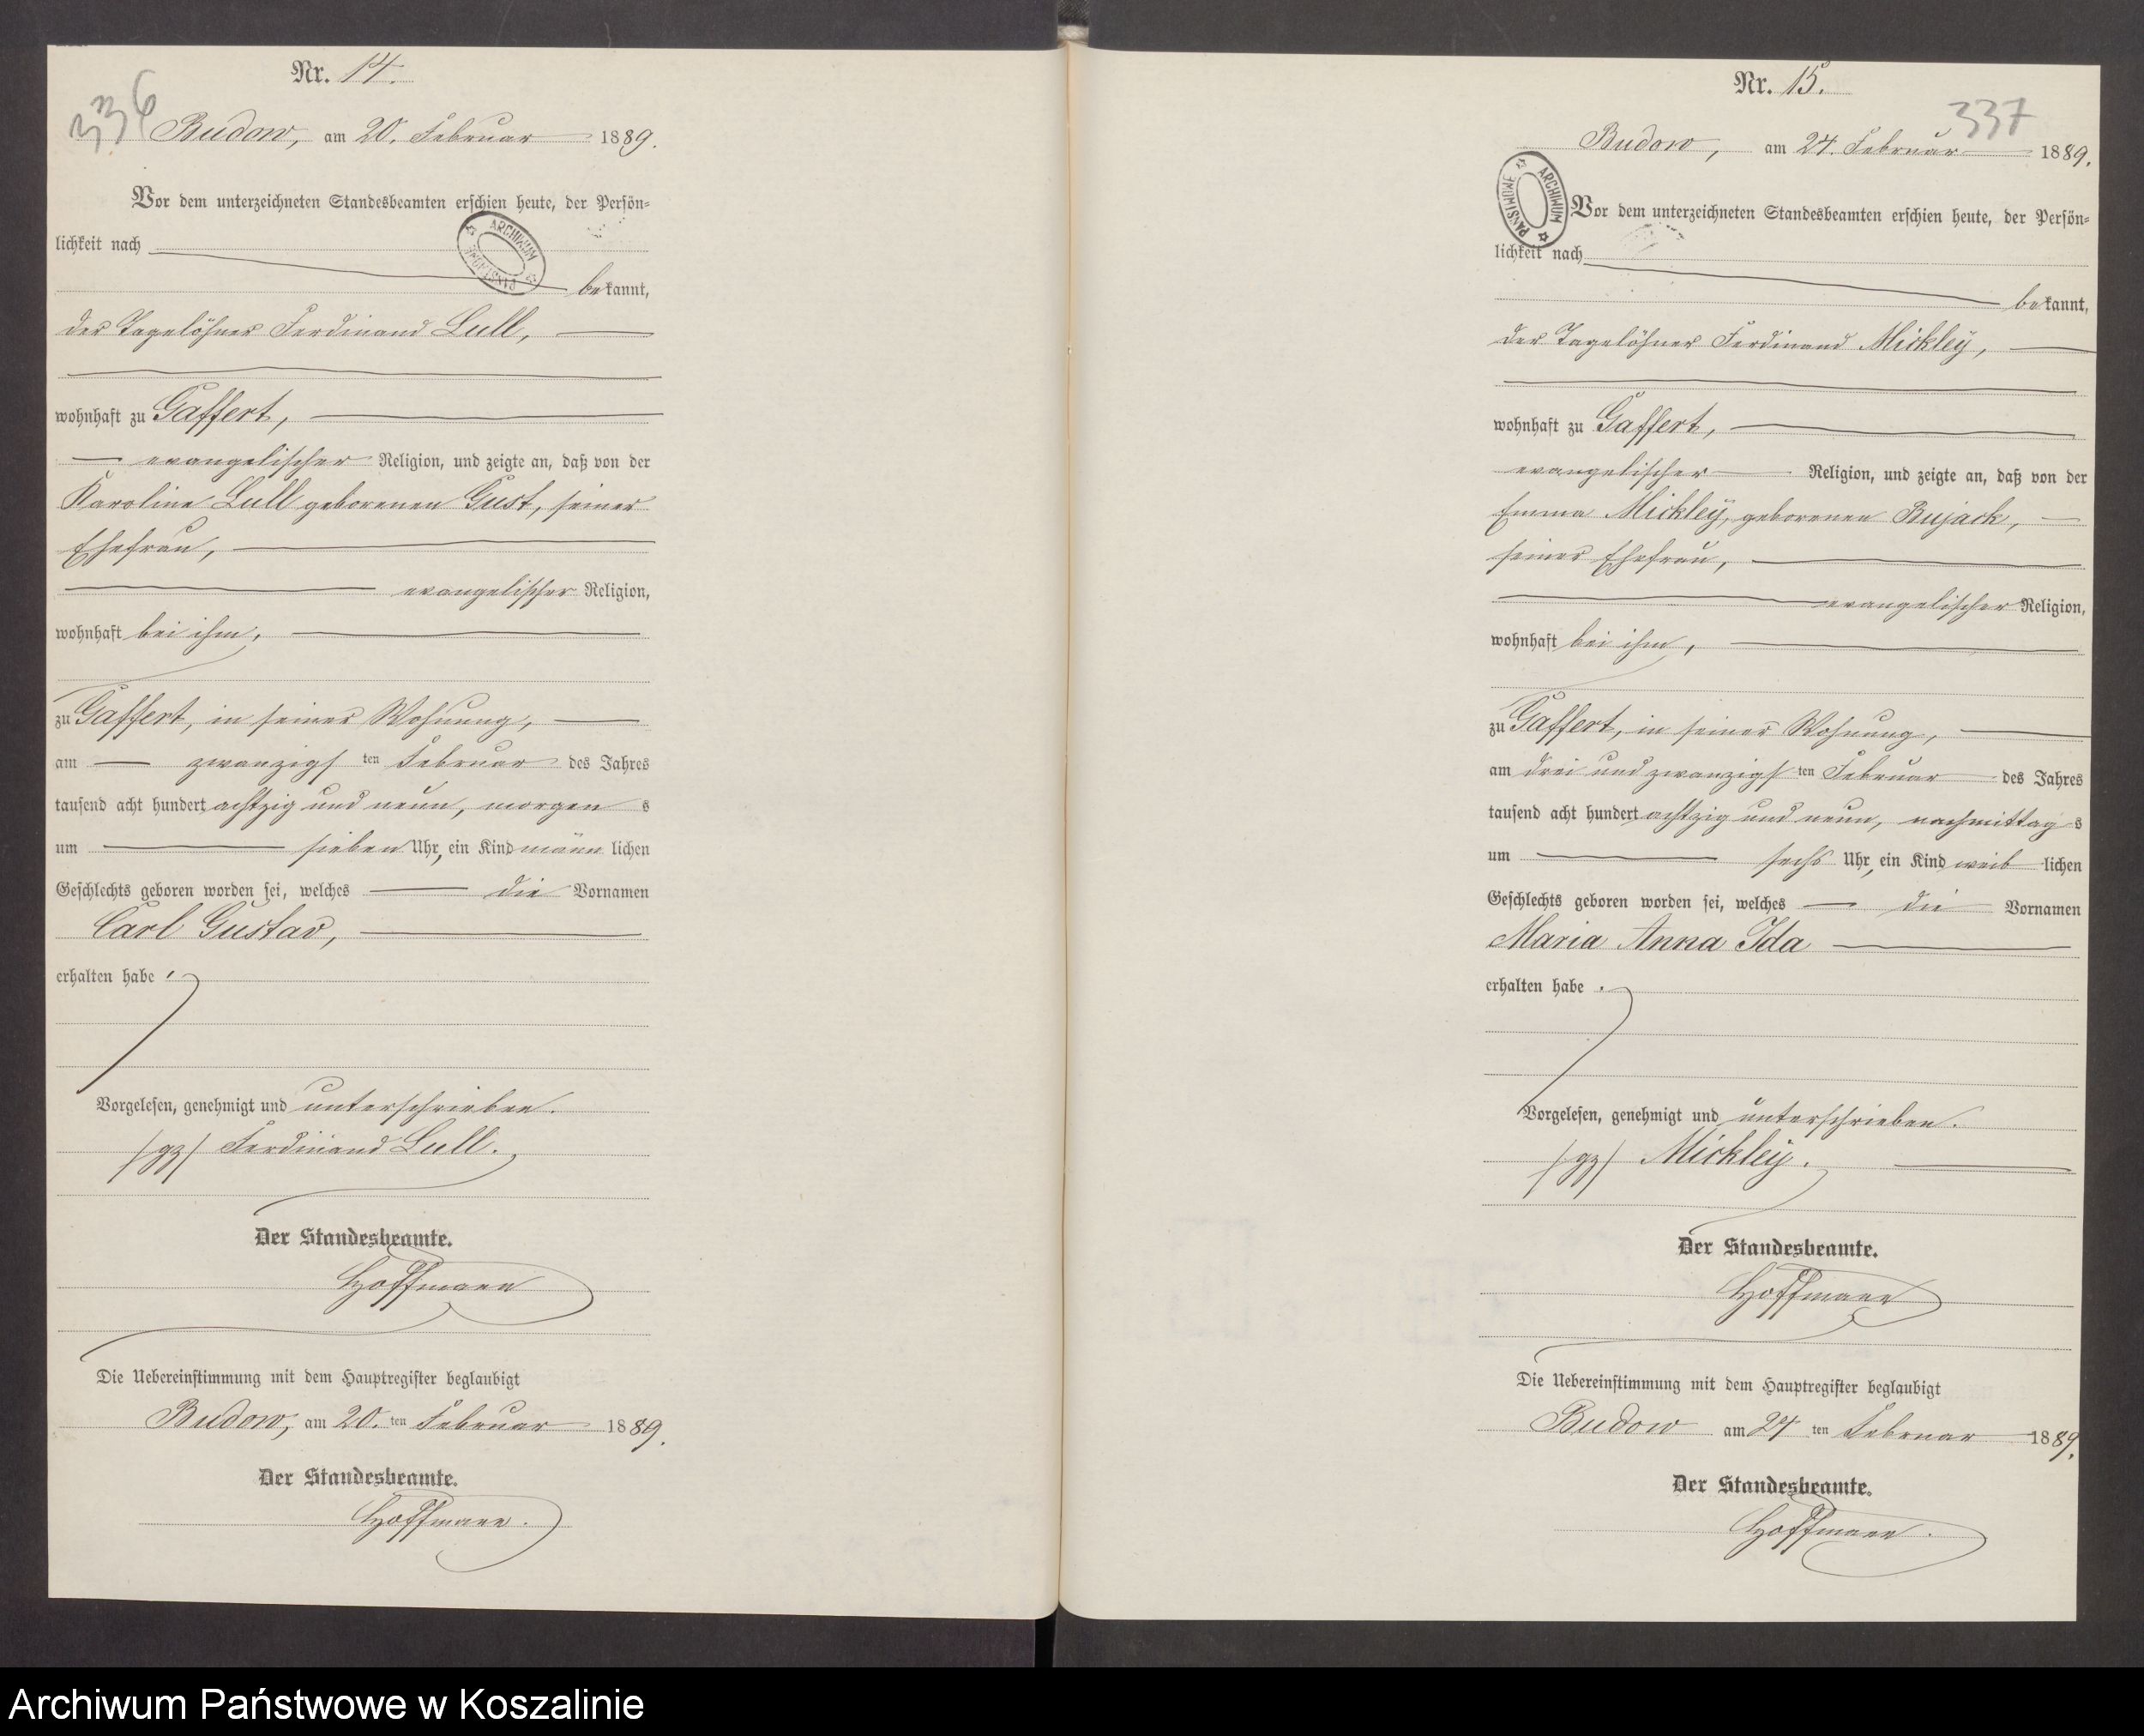 Nr. 14.
336
Budow, am 20. Februar 1889.
Vor dem unterzeichneten Standesbeamten erschien heute, der Persön=
lichkeit nach
ARCHIWUM PAŃSTWOWE
bekannt,
der Tagelöhner Ferdinand Lull,
wohnhaft zu Gaffert,
evangelischer Religion, und zeigte an, daß von der
Karoline Lull geborenen Gust, seiner
Ehefrau,
evangelischer Religion,
wohnhaft bei ihm,
zu Gaffert, in seiner Wohnung,
am zwanzigsten Februar des Jahres
tausend acht hundert achtzig und neun, morgens
um sieben Uhr, ein Kind männlichen
Geschlechts geboren worden sei, welches die Vornamen
Carl Gustav,
erhalten habe.
Vorgelesen, genehmigt und unterschrieben.
/gz/ Ferdinand Lull.
Der Standesbeamte.
Hoffmann
Die Uebereinstimmung mit dem Hauptregister beglaubigt
Budow, am 20. ten Februar 1889.
Der Standesbeamte.
Hoffmann.
Nr. 15.
337
Budow, am 24. Februar 1889.
ARCHIWUM PAŃSTWOWE
Vor dem unterzeichneten Standesbeamten erschien heute, der Persön=
lichkeit nach
bekannt,
der Tagelöhner Ferdinand Mickley,
wohnhaft zu Gaffert,
evangelischer Religion, und zeigte an, daß von der
Emma Mickley, geborenen Bujack,
seiner Ehefrau,
evangelischer Religion,
wohnhaft bei ihm,
zu Gaffert, in seiner Wohnung,
am drei und zwanzigsten Februar des Jahres
tausend acht hundert achtzig und neun, nachmittags
um sechs Uhr, ein Kind weiblichen
Geschlechts geboren worden sei, welches die Vornamen
Maria Anna Ida
erhalten habe.
Vorgelesen, genehmigt und unterschrieben.
/gz/ Mickley.
Der Standesbeamte.
Hoffmann
Die Uebereinstimmung mit dem Hauptregister beglaubigt
Budow am 24 ten Februar 1889.
Der Standesbeamte.
Hoffmann.
Archiwum Państwowe w Koszalinie